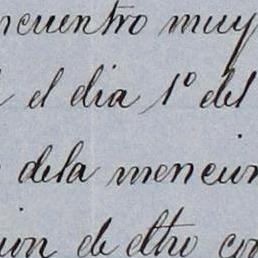 ncuentro muy
el dia 1º del
dela mencion
ion de dho co